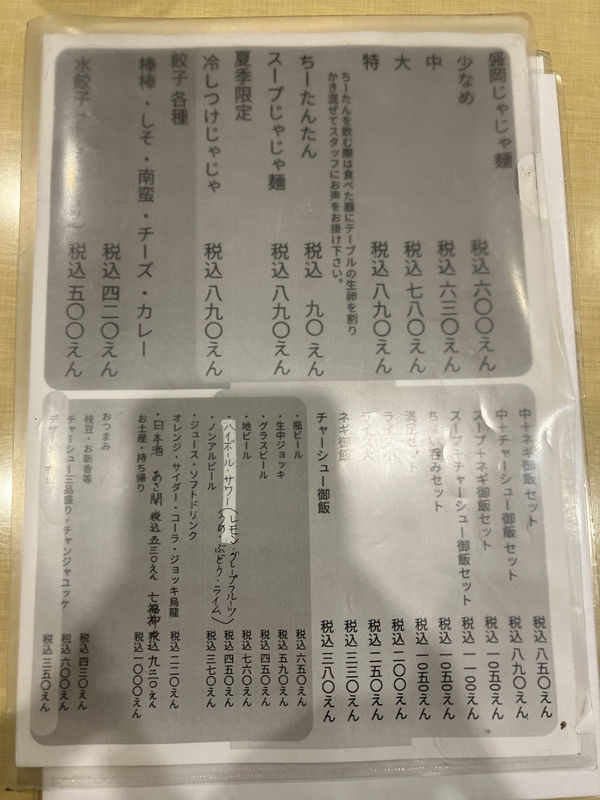 盛岡じゃじゃ麺
少なめ 税込 六〇〇えん
中 税込 六三〇えん
大 税込 七八〇えん
特 税込 八九〇えん
ちーたんを飲む際は食べた器にテーブルの生卵を割り
かき混ぜてスタッフにお声をお掛け下さい。
ちーたんたん 税込 九〇えん
スープじゃじゃ麺 税込 八九〇えん
夏季限定
冷しつけじゃじゃ 税込 八九〇えん
餃子 各種
棒棒・しそ・南蛮・チーズ・カレー 税込 四二〇えん
水餃子 税込 五〇〇えん
中+ネギ御飯セット 税込 八五〇えん
中+チャーシュー御飯セット 税込 八九〇えん
スープ+ネギ御飯セット 税込 一〇五〇えん
スープ+チャーシュー御飯セット 税込 一一〇〇えん
ちょい呑みセット 税込 一〇五〇えん
満足セット 税込 一〇五〇えん
ライス小 税込 二〇〇えん
ライス大 税込 二五〇えん
ネギ御飯 税込 三三〇えん
チャーシュー御飯 税込 三八〇えん
・瓶ビール 税込 六五〇えん
・生中ジョッキ 税込 五九〇えん
・グラスビール 税込 四五〇えん
・地ビール 税込 七六〇えん
・ハイボール・サワー(レモン・グレープフルーツ うめ・ぶどう・ライム) 税込 四五〇えん
・ノンアルビール 税込 三七〇えん
・ジュース・ソフトドリンク
オレンジ・サイダー・コーラ・ジョッキ烏龍 税込 二二〇えん
・日本酒 あさ開 税込 五三〇えん 七福神 税込 九三〇えん
お土産・持ち帰り 税込 一〇〇〇えん
おつまみ
枝豆・お新香等 税込 四三〇えん
チャーシュー三品盛り・チャンジャユッケ 税込 六〇〇えん
デザート 税込 三五〇えん